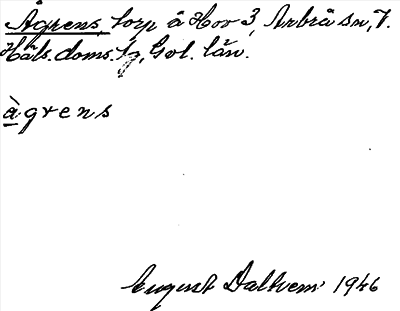 Ågrens, torp å Hov 3, Arbrå sn, V.
Häls. doms. fg, Gvl. län.
àgrens
August Dallvem 1946